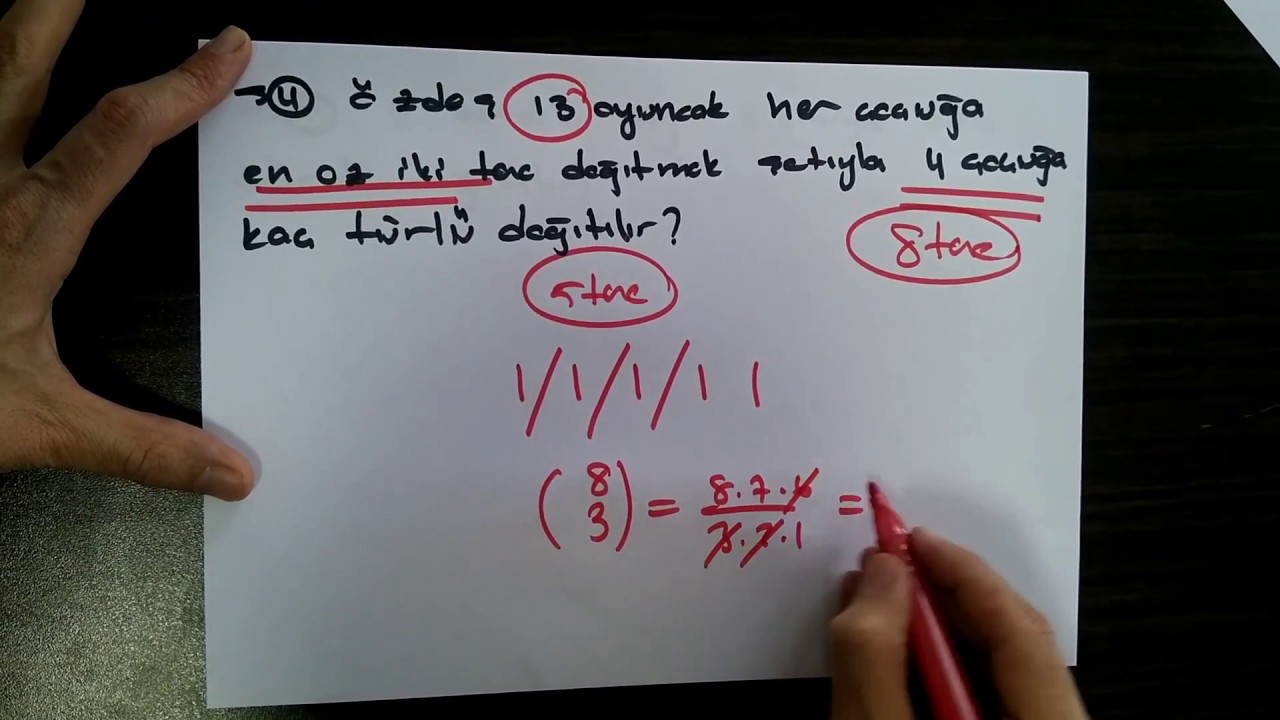 →④ özdeş 13 oyuncak her çocuğa
en az iki tane dağıtmak şartıyla 4 çocuğa
kaç türlü dağıtılır?
8 tane
5 tane
1/1/1/1 1
(8 3) = 8.7.6 / 3.2.1 =